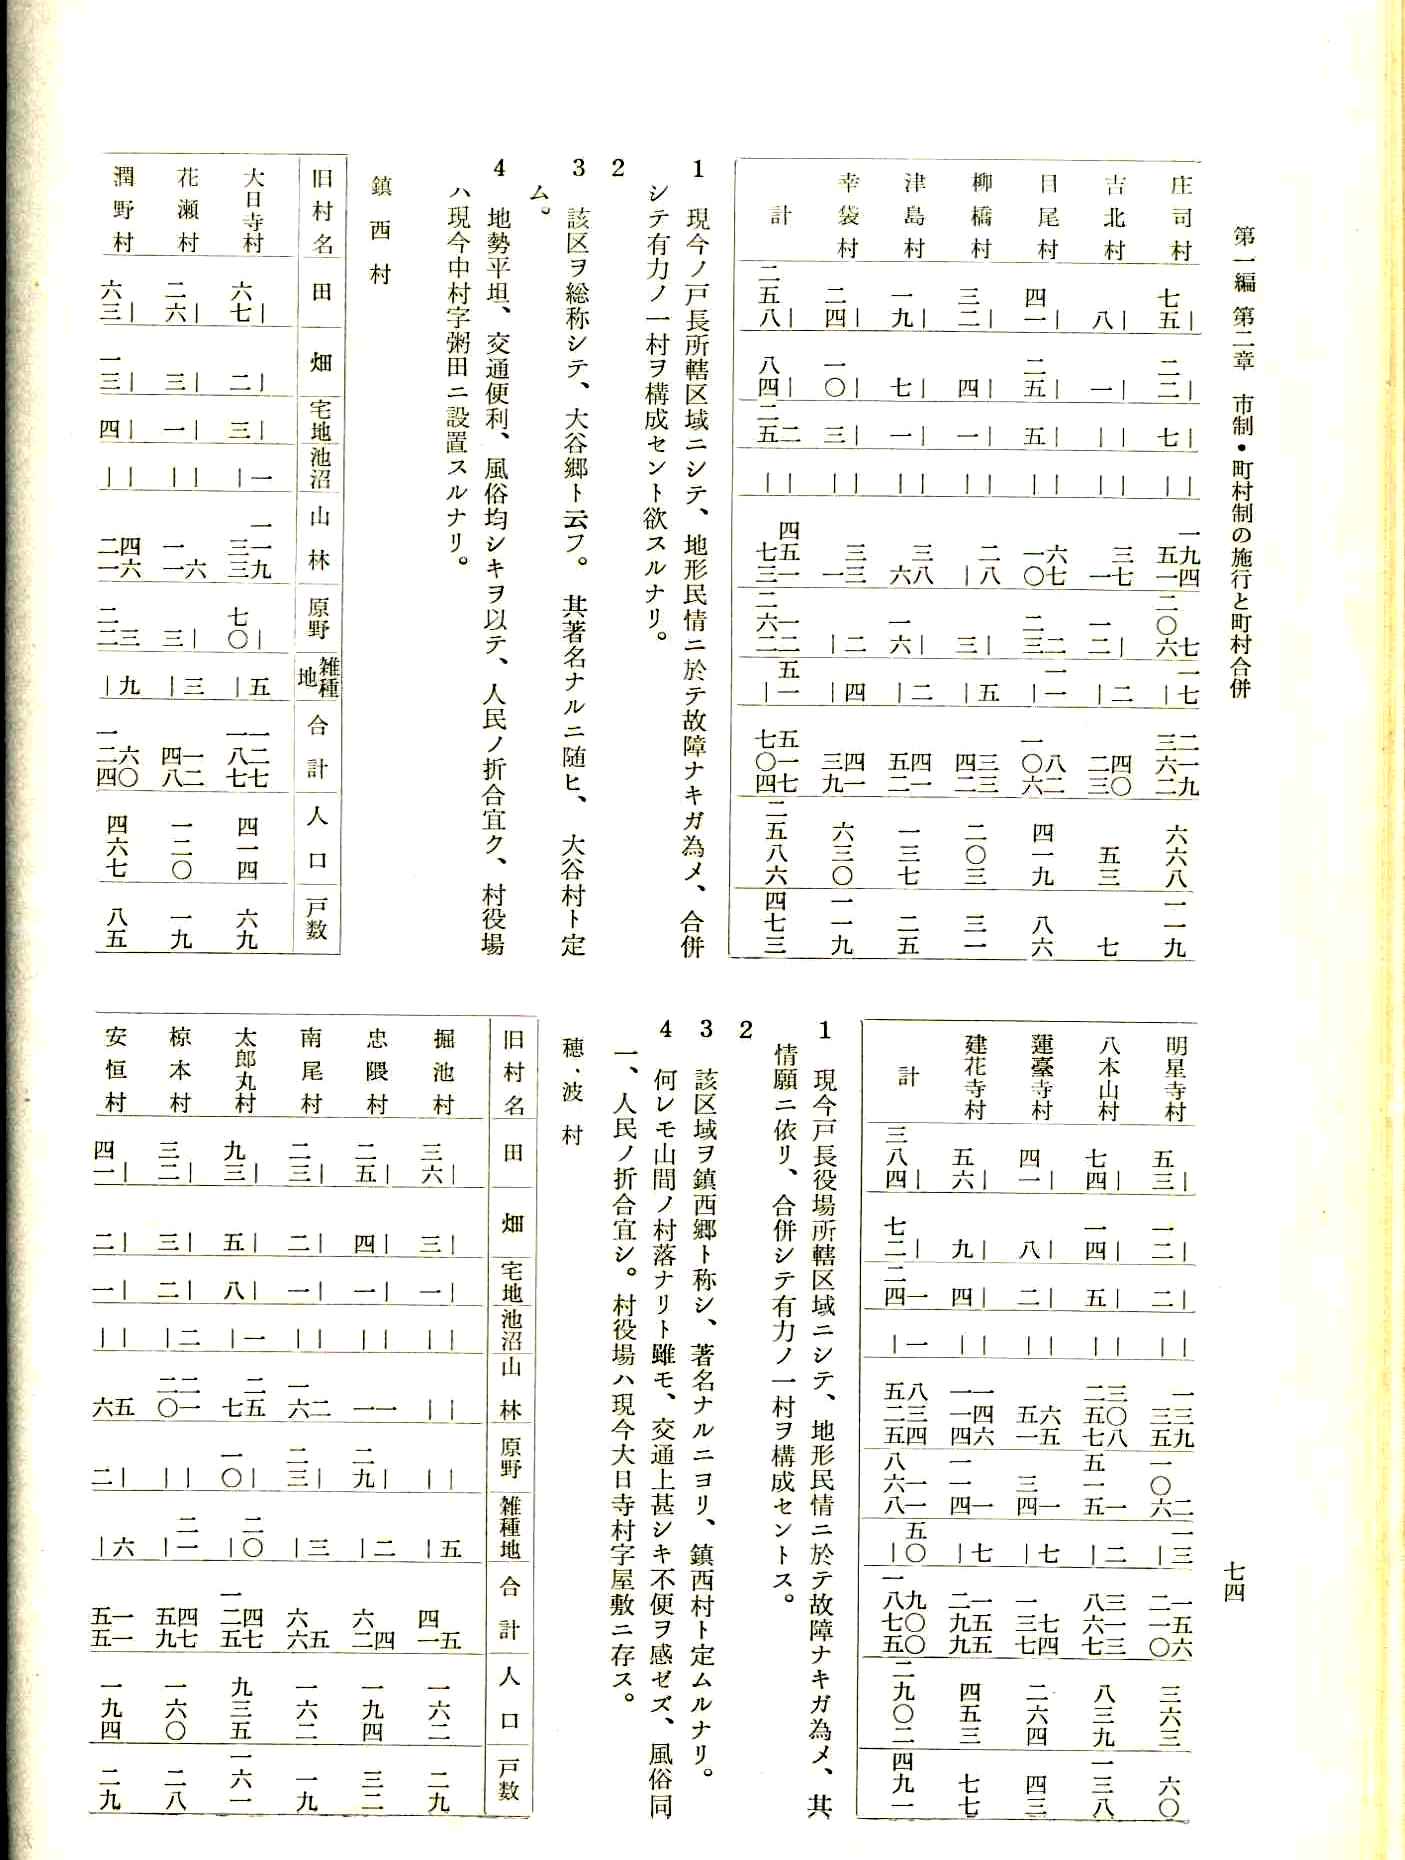 第一編 第二章 市制・町村制の施行と町村合併
七四
庄司村 ｜ 七五 ｜ 二二 ｜ 七 ｜ ｜ 一九四 五一 七 二〇六 一七 ｜ 二一九 三六二 六六八 一一九
吉北村 ｜ 八 ｜ 一 ｜ ｜ ｜ ｜ 三七 一 ｜ 一二 二 ｜ 四〇 二三 五三 七
目尾村 ｜ 四一 ｜ 二五 ｜ 五 ｜ ｜ 六七 一〇 二 二三 一一 ｜ 八二 一〇六 四一九 八六
柳橋村 ｜ 三二 ｜ 四 ｜ 一 ｜ ｜ 二八 ｜ ｜ 三 五 ｜ 三三 四二 二〇三 三一
津島村 ｜ 一九 ｜ 七 ｜ 一 ｜ ｜ 三八 六 ｜ 一六 二 ｜ 四一 五二 一三七 二五
幸袋村 ｜ 二四 ｜ 一〇 ｜ 三 ｜ ｜ 三三 一 二 ｜ 四 ｜ 四一 三九 六三〇 一一九
計 ｜ 二五八 ｜ 八四 二 二五 ｜ ｜ 四五一 七三 一二 二六二 五一 ｜ 五一七 七〇四 二五八六 四七三
1 現今ノ戸長所轄区域ニシテ、地形民情ニ於テ故障ナキガ為メ、合併
シテ有力ノ一村ヲ構成セント欲スルナリ。
2
3 該区ヲ総称シテ、大谷郷ト云フ。其著名ナルニ随ヒ、大谷村ト定
ム。
4 地勢平坦、交通便利、風俗均シキヲ以テ、人民ノ折合宜ク、村役場
ハ現今中村字粥田ニ設置スルナリ。
鎮西村
旧村名 田 畑 宅地 池沼 山林 原野 雑種地 合計 人口 戸数
大日寺村 ｜ 六七 ｜ 二 ｜ 三 一 ｜ 一一九 三三 ｜ 七〇 五 ｜ 一二七 一八七 四一四 六九
花瀬村 ｜ 二六 ｜ 三 ｜ 一 ｜ ｜ 六 一一 ｜ 三 三 ｜ 一二 四八 一二〇 一九
潤野村 ｜ 六三 ｜ 一三 ｜ 四 ｜ ｜ 四六 二一 三 二二 九 ｜ 六〇 一二四 四六七 八五
明星寺村 ｜ 五三 ｜ 一二 ｜ 二 ｜ ｜ 一三九 三五 二 一〇六 一三 ｜ 一五六 二一〇 三六三 六〇
八木山村 ｜ 七四 ｜ 一四 ｜ 五 ｜ ｜ 三〇八 二五七 一 五一五 二 ｜ 三一三 八六七 八三九 一三八
蓮臺寺村 ｜ 四一 ｜ 八 ｜ 二 ｜ ｜ 六五 五一 一 三四 七 ｜ 七四 一三七 二六四 四三
建花寺村 ｜ 五六 ｜ 九 ｜ 四 ｜ ｜ 一四六 一一四 一 一一四 七 ｜ 一五五 二九九 四五三 七七
計 ｜ 三八四 ｜ 七二 一 二四 一 ｜ 八三四 五二五 一一 八六八 五〇 ｜ 九〇〇 一八七五 二九〇二 四九一
1 現今戸長役場所轄区域ニシテ、地形民情ニ於テ故障ナキガ為メ、其
情願ニ依リ、合併シテ有力ノ一村ヲ構成セントス。
2
3 該区域ヲ鎮西郷ト称シ、著名ナルニヨリ、鎮西村ト定ムルナリ。
4 何レモ山間ノ村落ナリト雖モ、交通上甚シキ不便ヲ感ゼズ、風俗同
一、人民ノ折合宜シ。村役場ハ現今大日寺村字屋敷ニ存ス。
穂波村
旧村名 田 畑 宅地 池沼 山林 原野 雑種地 合計 人口 戸数
掘池村 ｜ 三六 ｜ 三 ｜ 一 ｜ ｜ ｜ ｜ ｜ ｜ 五 ｜ 五 四一 一六二 二九
忠隈村 ｜ 二五 ｜ 四 ｜ 一 ｜ ｜ 一 一 ｜ 二九 二 ｜ 四 六二 一九四 三二
南尾村 ｜ 二三 ｜ 二 ｜ 一 ｜ ｜ 二 一六 ｜ 二三 三 ｜ 五 六六 一六二 一九
太郎丸村 ｜ 九三 ｜ 五 ｜ 八 一 ｜ 二五 七 ｜ 一〇 二〇 ｜ 四七 一二五 九三五 一六一
椋本村 ｜ 三二 ｜ 三 ｜ 二 二 ｜ 二一 二〇 ｜ ｜ 二一 ｜ 四七 五九 一六〇 二八
安恒村 ｜ 四一 ｜ 二 ｜ 一 ｜ ｜ 五 六 ｜ 二 六 ｜ 一一 五五 一九四 二九